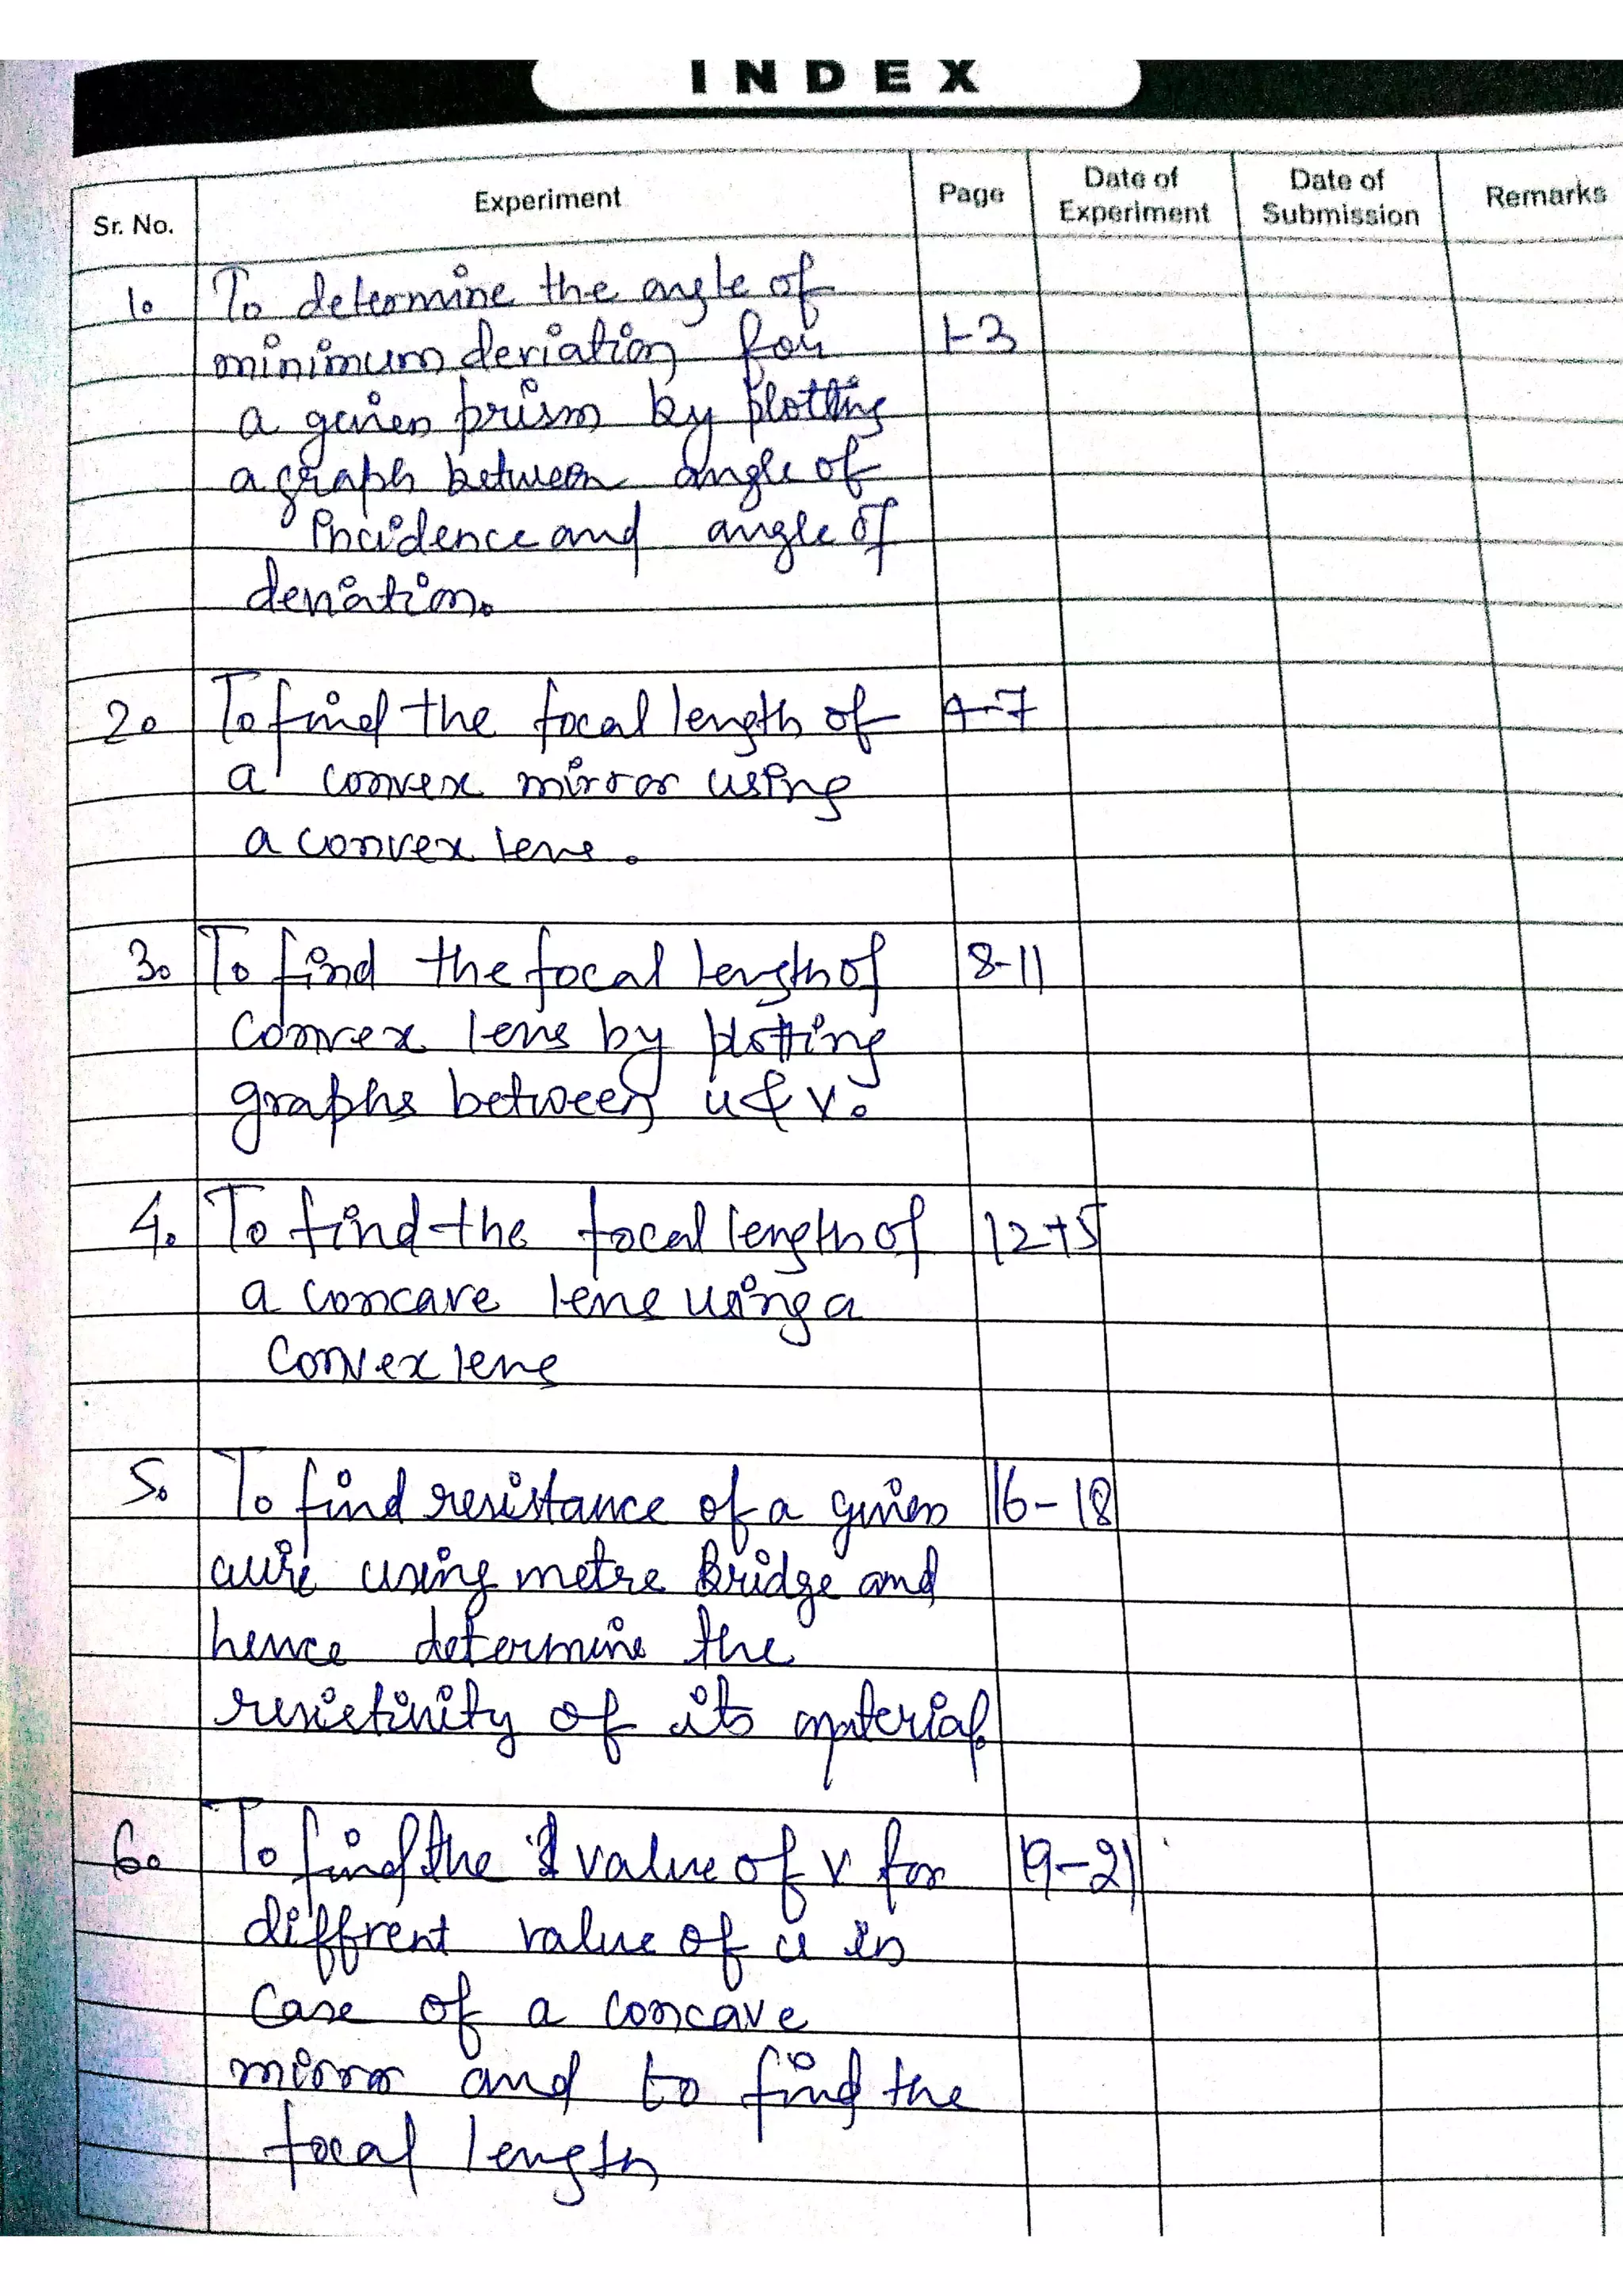 INDEX
Sr. No. Experiment Page Date of Experiment Date of Submission Remarks
1. To determine the angle of
minimum deviation for 1-3
a given prism by plotting
a graph between angle of
incidence and angle of
deviation.
2. To find the focal length of 4-7
a convex mirror using
a convex lens.
3. To find the focal length of 8-11
convex lens by plotting
graphs between u & v.
4. To find the focal length of 12-15
a concave lens using a
convex lens
5. To find resistance of a given 16-18
wire using metre Bridge and
hence determine the
resistivity of its material.
6. To find the value of v for 19-21
diffrent value of u in
case of a concave
mirror and to find the
focal length